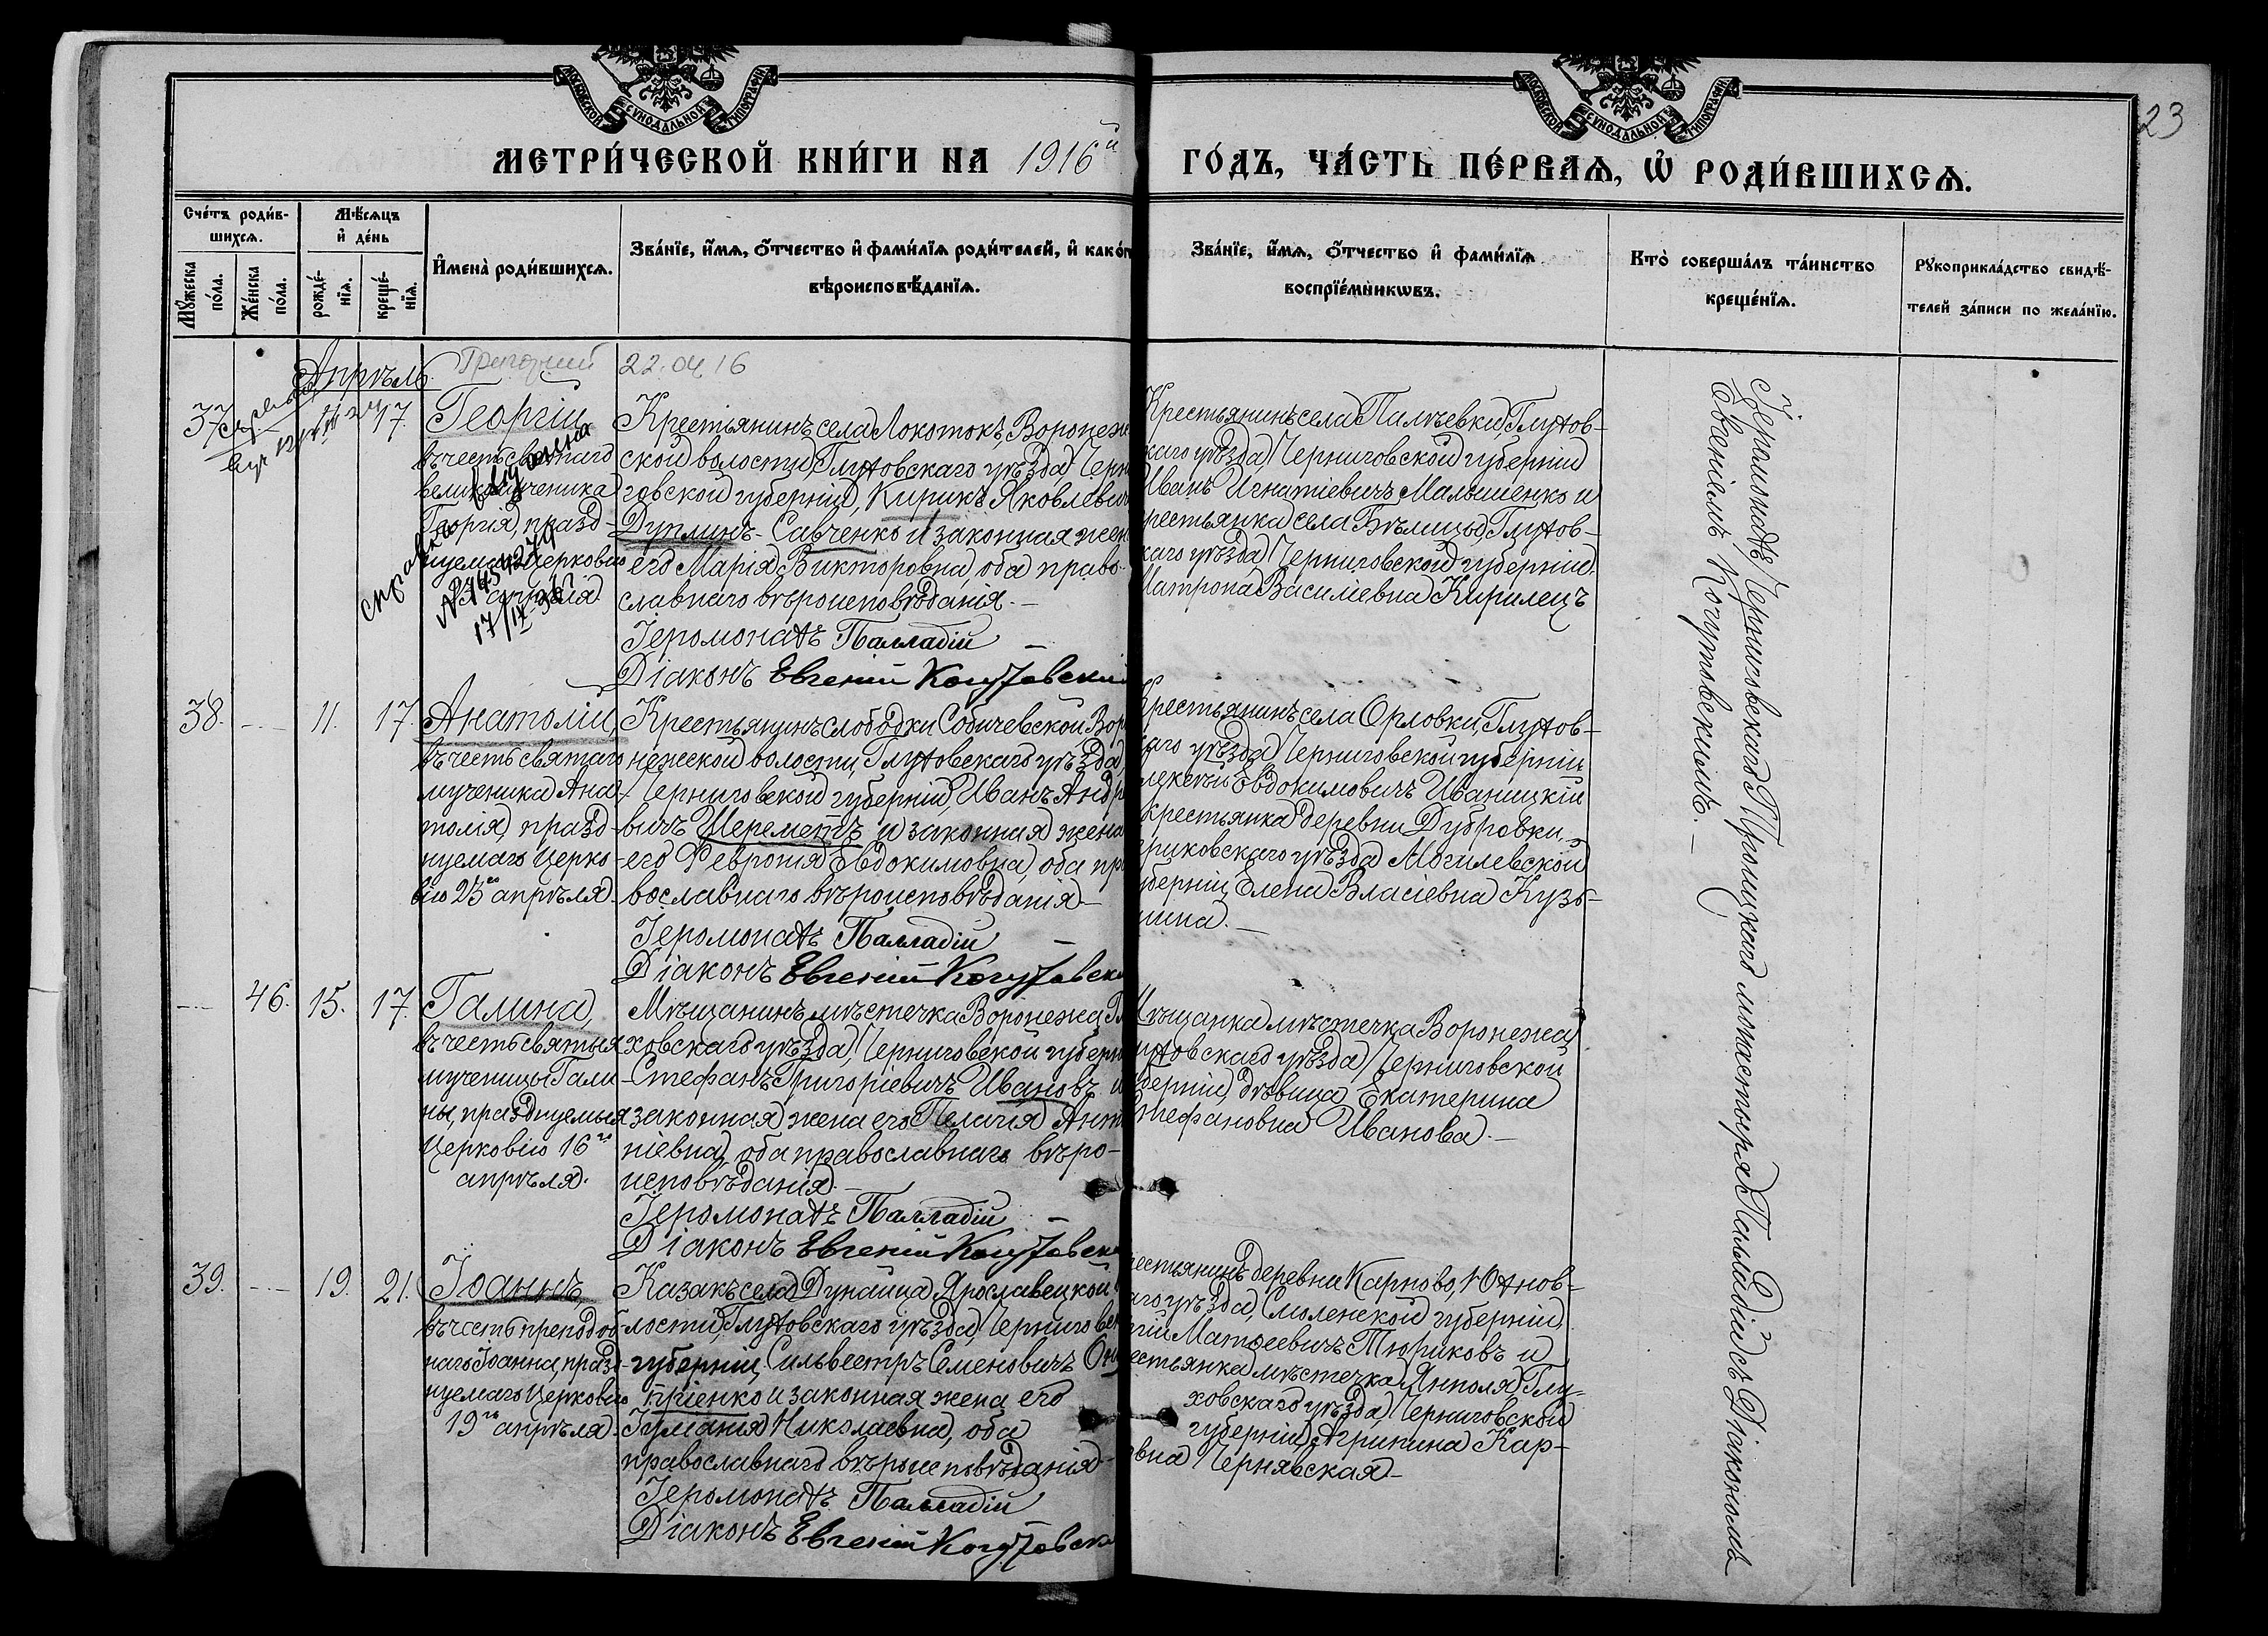 МОСКОВСКОЙ СѴНОДАЛЬНОЙ ТИПОГРАФІИ
МОСКОВСКОЙ СѴНОДАЛЬНОЙ ТИПОГРАФІИ
23
МЕТРИ́ЧЕСКОЙ КНИ́ГИ НА 1916й
ГО́ДЪ, ЧА́СТЬ ПЕ́РВАѦ, Ѽ РОДИ́ВШИХСѦ.
Сче́тъ роди́в-
шихсѧ.
Мѣ́сѧцъ
и҆ де́нь
И҆мена̀ роди́вшихсѧ.
Зва́нїе, и҆́мѧ, ѻ҆́тчество и҆ фами́лїѧ роди́телей, и҆ како́г
вѣроисповѣ́данїѧ.
Зва́нїе, и҆́мѧ, ѻ҆́тчество и҆ фами́лїѧ
воспрїе́мникѡвъ.
Кто̀ соверша́лъ та́инство
креще́нїѧ.
Рꙋкоприкла́дство свидѣ́-
телей за́писи по жела́нїю.
Мꙋ́жеска
по́ла.
Же́нска
по́ла.
рожде́-
нїѧ.
креще́-
нїѧ.
Апрѣль.
Григорий 22.04.16
37.
17.
Георгій
въ честь святаго
великомученика
Георгія, празд-
нуемаго Церковію
23 апрѣля.
справка выдана
17/IX
Крестьянинъ села Локотокъ Воронеж
ской волости, Глуховскаго уѣзда, Черн
говской губерніи, Кирикъ Яковлевич
Дуплинъ-Савченко и законная жен
его Марія Викторовна, оба право-
славнаго вѣроисповѣданія.—
Іеромонахъ Палладій —
Діаконъ Евгеній Когутовский
Крестьянинъ села Пилѣевки, Глухов-
скаго уѣзда, Черниговской губерніи
Иванъ Игнатіевичъ Малышенко и
крестьянка села Бѣлицы, Глухов-
скаго уѣзда, Черниговской губерніи,
Матрона Василіевна Кирилецъ
Іеромонахъ Черниговскаго Троицкаго монастыря Палладій съ Діакономъ
Евгеніемъ Когутовскимъ.—
38. — 11. 17. Анатолій,
въ честь святаго
мученика Ана-
толія, празд-
нуемаго Церко-
вію 23го апрѣля.
Крестьянинъ слободки Собичевской Вор
нежской волости, Глуховскаго уѣзда,
Черниговской губерніи, Иванъ Андр
вичъ Шереметъ и законная жена
его Февронія Евдокимовна, оба пра
вославнаго вѣроисповѣданія.—
Іеромонахъ Палладій —
Діаконъ Евгеній Когутовски
крестьянинъ села Орловки, Глухов-
скаго уѣзда, Черниговской губерніи
лексѣй Евдокимовичъ Иваницкій
крестьянка деревни Дубровки,
риковскаго уѣзда Могилевской
губерніи, Елена Власіевна Кузь-
мина.—
— 46. 15. 17. Галина,
въ честь святыя
мученицы Гали-
ны, празднуемыя
Церковію 16го
апрѣля.
Мѣщанинъ мѣстечка Воронежа Гл
ховскаго уѣзда, Черниговской губерн
Стефанъ Григоріевичъ Ивановъ и
законная жена его Пелагія Анто
ніевна, оба православнаго вѣро-
исповѣданія.—
Іеромонахъ Палладій —
Діаконъ Евгеній Когутовски
Мѣщанка мѣстечка Воронежа,
луховскаго уѣзда, Черниговской
губерніи, дѣвица Екатерина
Стефановна Иванова.—
39. — 19. 21. Іоаннъ,
въ честь преподоб-
наго Іоанна, празд-
нуемаго Церковію
19го апрѣля.
Казакъ села Дунайца, Ярославецкой
лости, Глуховскаго уѣзда, Черниговск
губерніи, Сильвестръ Семеновичъ Он
пріенко и законная жена его
Іуліанія Николаевна, оба
православнаго вѣроисповѣданія.—
Іеромонахъ Палладій
Діаконъ Евгеній Когутовск
рестьянинъ деревни Карпово, Юхнов-
скаго уѣзда, Смоленской губерніи,
ргій Матѳеевичъ Тюриковъ и
рестьянка мѣстечка Янполя, Глу-
ховскаго уѣзда, Черниговской
губерніи, Агрипина Кар-
овна Чернявская.—